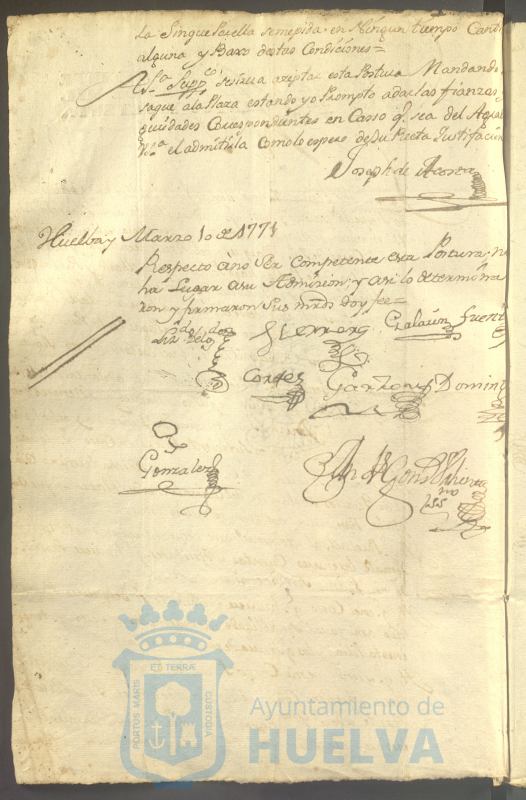 la Sin que Por ella se me pida en Ningun tiempo Cant
alguna y Baxo destas Condiciones =
A Vs.ª Supp.co se sirva azeptar esta Postura Mandando
saque a la Plaza estando yo Prompto a dar las fianzas y
quidades Correspondientes en Casso q.e sea del Agra
el admitirla Como lo espero de su Recta Justificacion
Joseph de Acosta
Huelba y Marzo 10 de 1771
Respecto a no Ser Competente esta Postura no
ha Lugar a su Admision; y asi lo determina
ron y firmaron Sus mrds doy fee =
Liz.do Delg.do Herrera Galaun fuent
Cortes Garzon Doming
Gonzalez
ss.no
PORTUS MARIS ET TERRÆ CUSTODIA
Ayuntamiento de
HUELVA